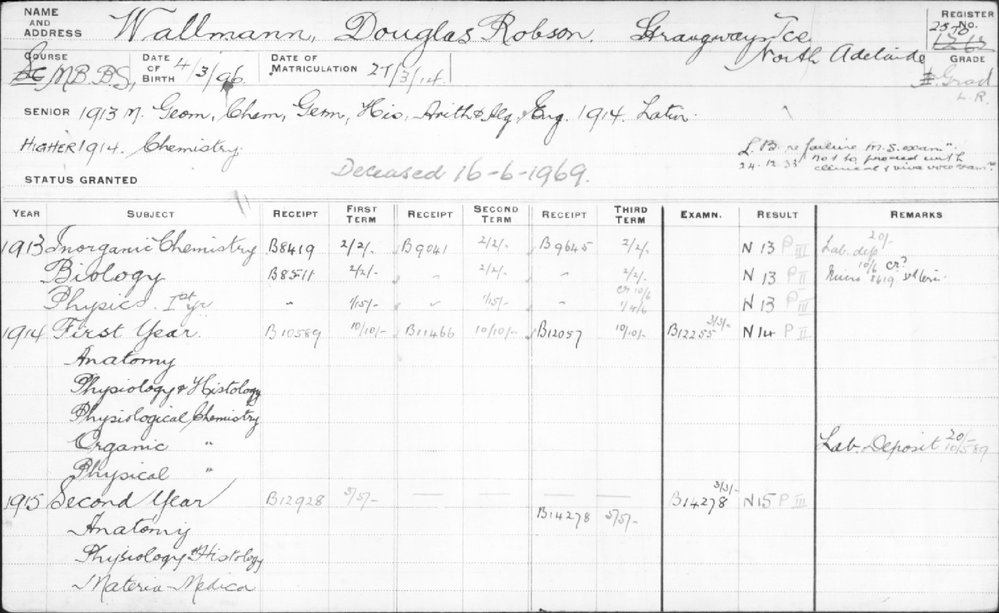 NAME AND ADDRESS Wallmann, Douglas Robson. Strangways Tce North Adelaide REGISTER No. 2578
COURSE M.B.B.S., DATE OF BIRTH 4/3/96 DATE OF MATRICULATION 27/3/14. GRADE Grad L.R.
SENIOR 1913 M. Geom, Chem, Germ, His, Arith & Alg. Eng. 1914. Latin
HIGHER 1914. Chemistry.
L.B. re failure M.S. exam".
24.12.33 not to proceed with
clinical & viva voce exam"
STATUS GRANTED Deceased 16-6-1969.
YEAR SUBJECT RECEIPT FIRST TERM RECEIPT SECOND TERM RECEIPT THIRD TERM EXAMN. RESULT REMARKS
1913 Inorganic Chemistry B8419 2/2/- B9041 2/2/- B9645 2/2/- N 13 P III Lab. dep 20/-
Biology B8511 2/2/- " 2/2/- " 2/2/- N 13 P II Micro 10/6 cr? 8619
Physics. 1st yr " 1/15/- " 1/15/- cr 10/6 1/4/6 N 13 P III
1914 First Year. B10589 10/10/- B11466 10/10/- B12057 10/10/- B12255 3/3/- N14 P II
Anatomy
Physiology & Histology
Physiological Chemistry
Organic " Lab. Deposit 20/- 10589
Physical "
1915 Second Year B12928 5/5/- — — B14278 5/5/- B14278 3/3/- N15 P III
Anatomy
Physiology & Histology
Materia-Medica